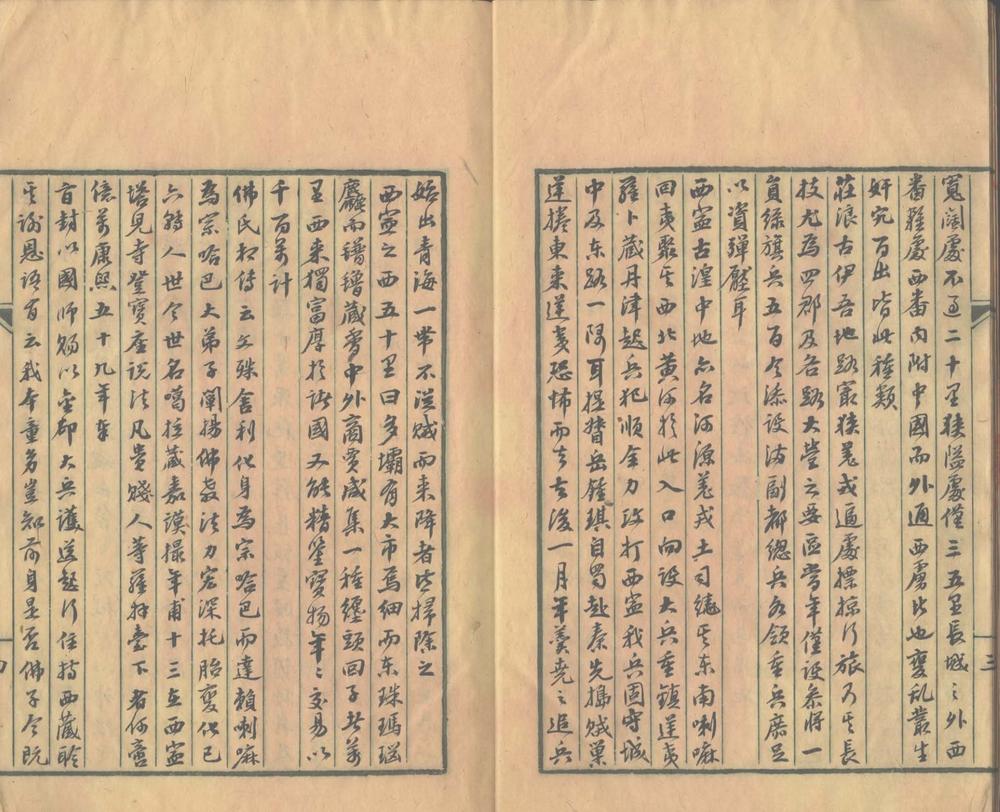 寬濶處不过二十里狹隘處僅三五里長城之外西
番雜處西番内附中國而外通西虜此也變乱叢生
奸宄百出皆此種類
莊浪古伊吾地路最狹羗戎逼處摽掠行旅乃其長
技尤為四郡及各路大營之要區當年僅設叅将一
員綠旗兵五百今添設滿副都總兵各領重兵庶足
以資弹壓耳
西寧古湟中地亦名河源羗戎土司繞其東南喇嘛
回夷聚其西北黄河於此入口向設大兵重鎮逆夷
羅卜藏丹津起兵犯順全力攻打西寧我兵固守城
中及东路一隅耳提督岳鍾琪自蜀赴秦先搗贼巢
逆捲東来逆夷恐怖而去去後一月年羹尭之追兵
三
始出青海一帶不從贼而来降者皆掃除之
西寧之西五十里曰多壩有大市焉细而东珠瑪瑙
麤而氆氇藏香中外商賈咸集一種纏頭回子者萬
里西来獨富厚於諸國又能精鉴寳物年年交易以
千百萬计
佛氏相傳云文殊舍利化身為宗哈巴而達賴喇嘛
為宗哈巴大弟子闡揚佛教法力宏深托胎變化已
六轉人世今世名噶拉藏嘉謨撮年甫十三在西寧
塔兒寺登寳座説法凡贵賤人等羅拜臺下者何啻
億萬康熙五十九年奉
旨封以國師賜以金印大兵護送起行住持西藏聆
其谢恩语有云我本童男豈知前身是否佛子今既